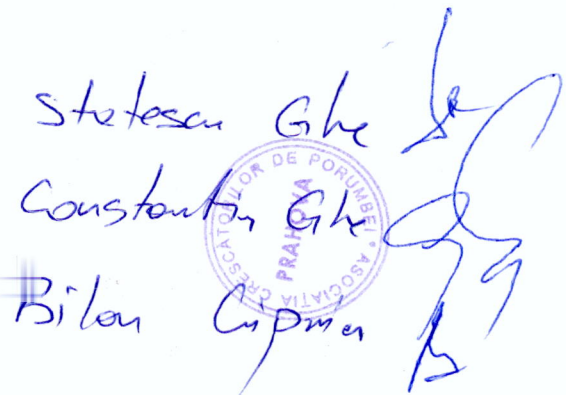 Statescu Ghe
Constantin Ghe
Bilan Ciprian
ASOCIATIA CRESCATORILOR DE PORUMBEI *
PRAHOVA